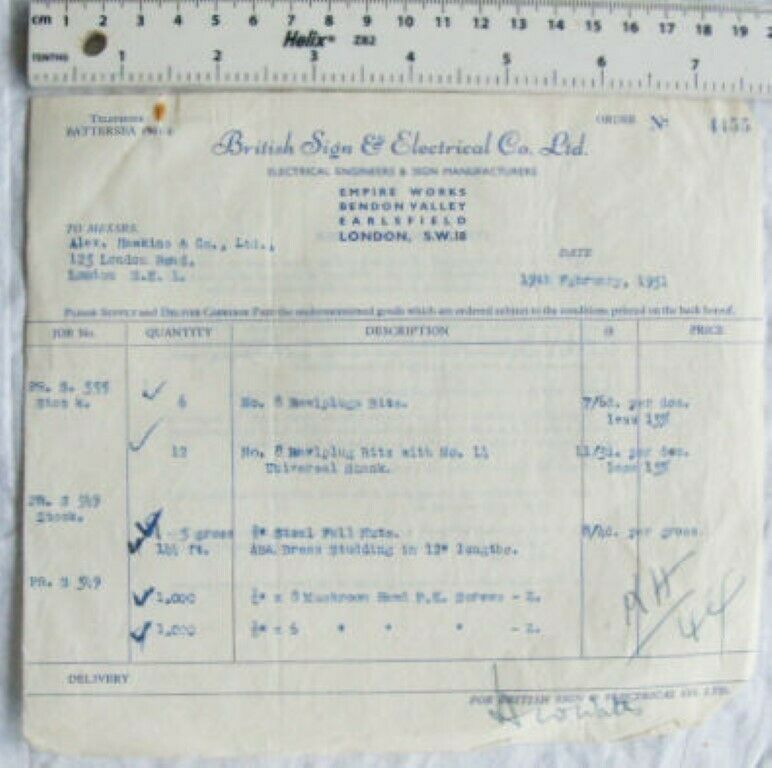 cm 1 2 3 4 5 6 7 8 9 10 11 12 13 14 15 16 17 18 19
Helix ZB2
TENTHS 1 2 3 4 5 6 7
TELEPHONE
BATTERSEA
ORDER No 4455
British Sign & Electrical Co. Ltd.
ELECTRICAL ENGINEERS & SIGN MANUFACTURERS
EMPIRE WORKS
BENDON VALLEY
EARLSFIELD
LONDON, S.W.18
TO MESSRS.
Alex. Hawkins & Co., Ltd.,
123 London Road,
London S.E. 1.
DATE
19th February, 1951
PLEASE SUPPLY and DELIVER CARRIAGE PAID the undermentioned goods which are ordered subject to the conditions printed on the back hereof.
JOB No. QUANTITY DESCRIPTION @ PRICE
PR. S. 555
Stock. 6 No. 8 Rawlplugs Bits. 7/6d. per doz.
less 15%
12 No. 8 Rawlplug Bits with No. 14 11/3d. per doz.
Universal Shank. less 15%
PR. S 549
Stock.
5 gross Steel Full Nuts. per gross.
ft. Brass Studding in 12" lengths.
PR. S 549
1,000 x 8 Mushroom Head P.K. Screws - Z.
1,000 x 6 " " " - Z.
DELIVERY
FOR BRITISH SIGN & ELECTRICAL CO. LTD.